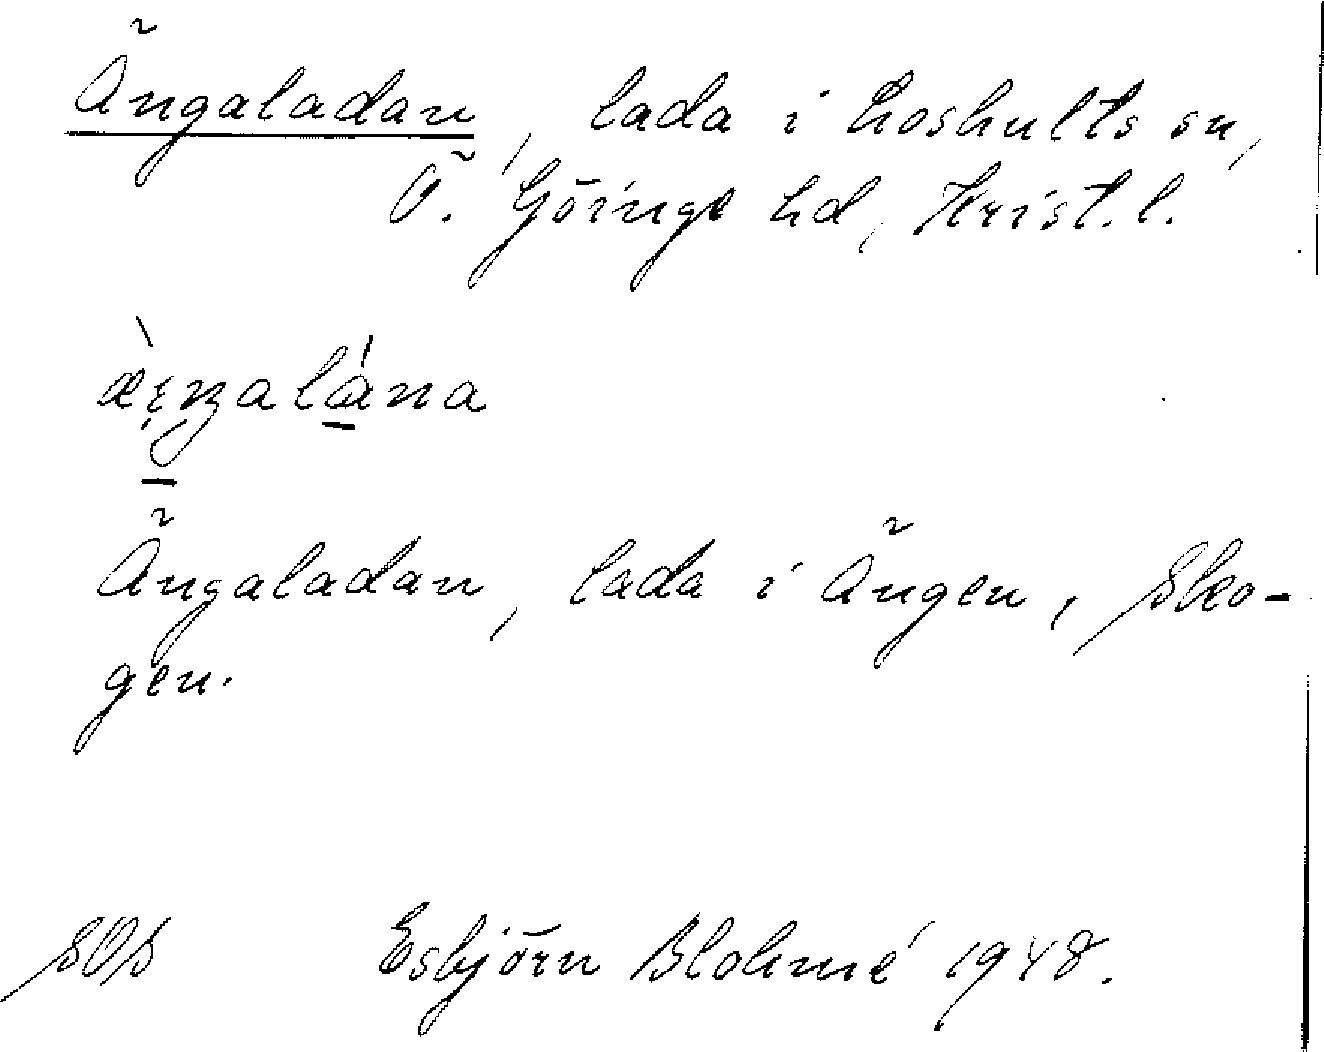 Ängaladan, lada i Loshults sn,
Ö. Göinge hd, Krist. l.
Ängaladan, lada i Ängen, Sko-
gen.
SOS Esbjörn Blohmé 1948.